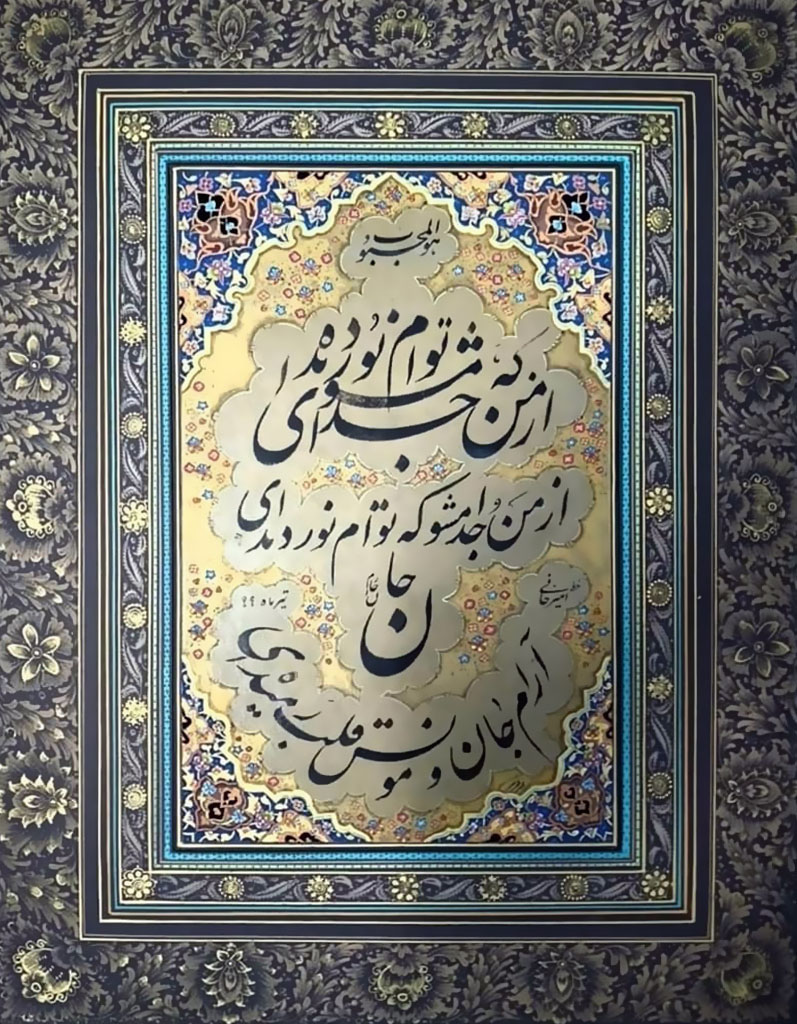 هوالمحبوب
از من که توام نور دیده
جدا مشو ای
از من جدا مشو که توام نور دیده ای
جان
خط امیر
تیرماه ۹۹
آرام جان و مونس قلب رمیده ای